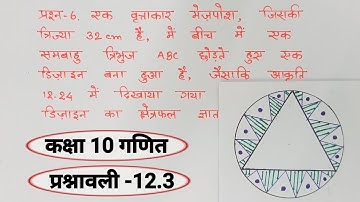 प्रश्न-6. एक वृत्ताकार मेज़पोश, जिसकी
त्रिज्या 32 cm है, में बीच में एक
समबाहु त्रिभुज ABC छोड़ते हुए एक
डिज़ाइन बना हुआ है, जैसाकि आकृति
12.24 में दिखाया गया
डिज़ाइन का क्षेत्रफल ज्ञात
कक्षा 10 गणित
प्रश्नावली -12.3